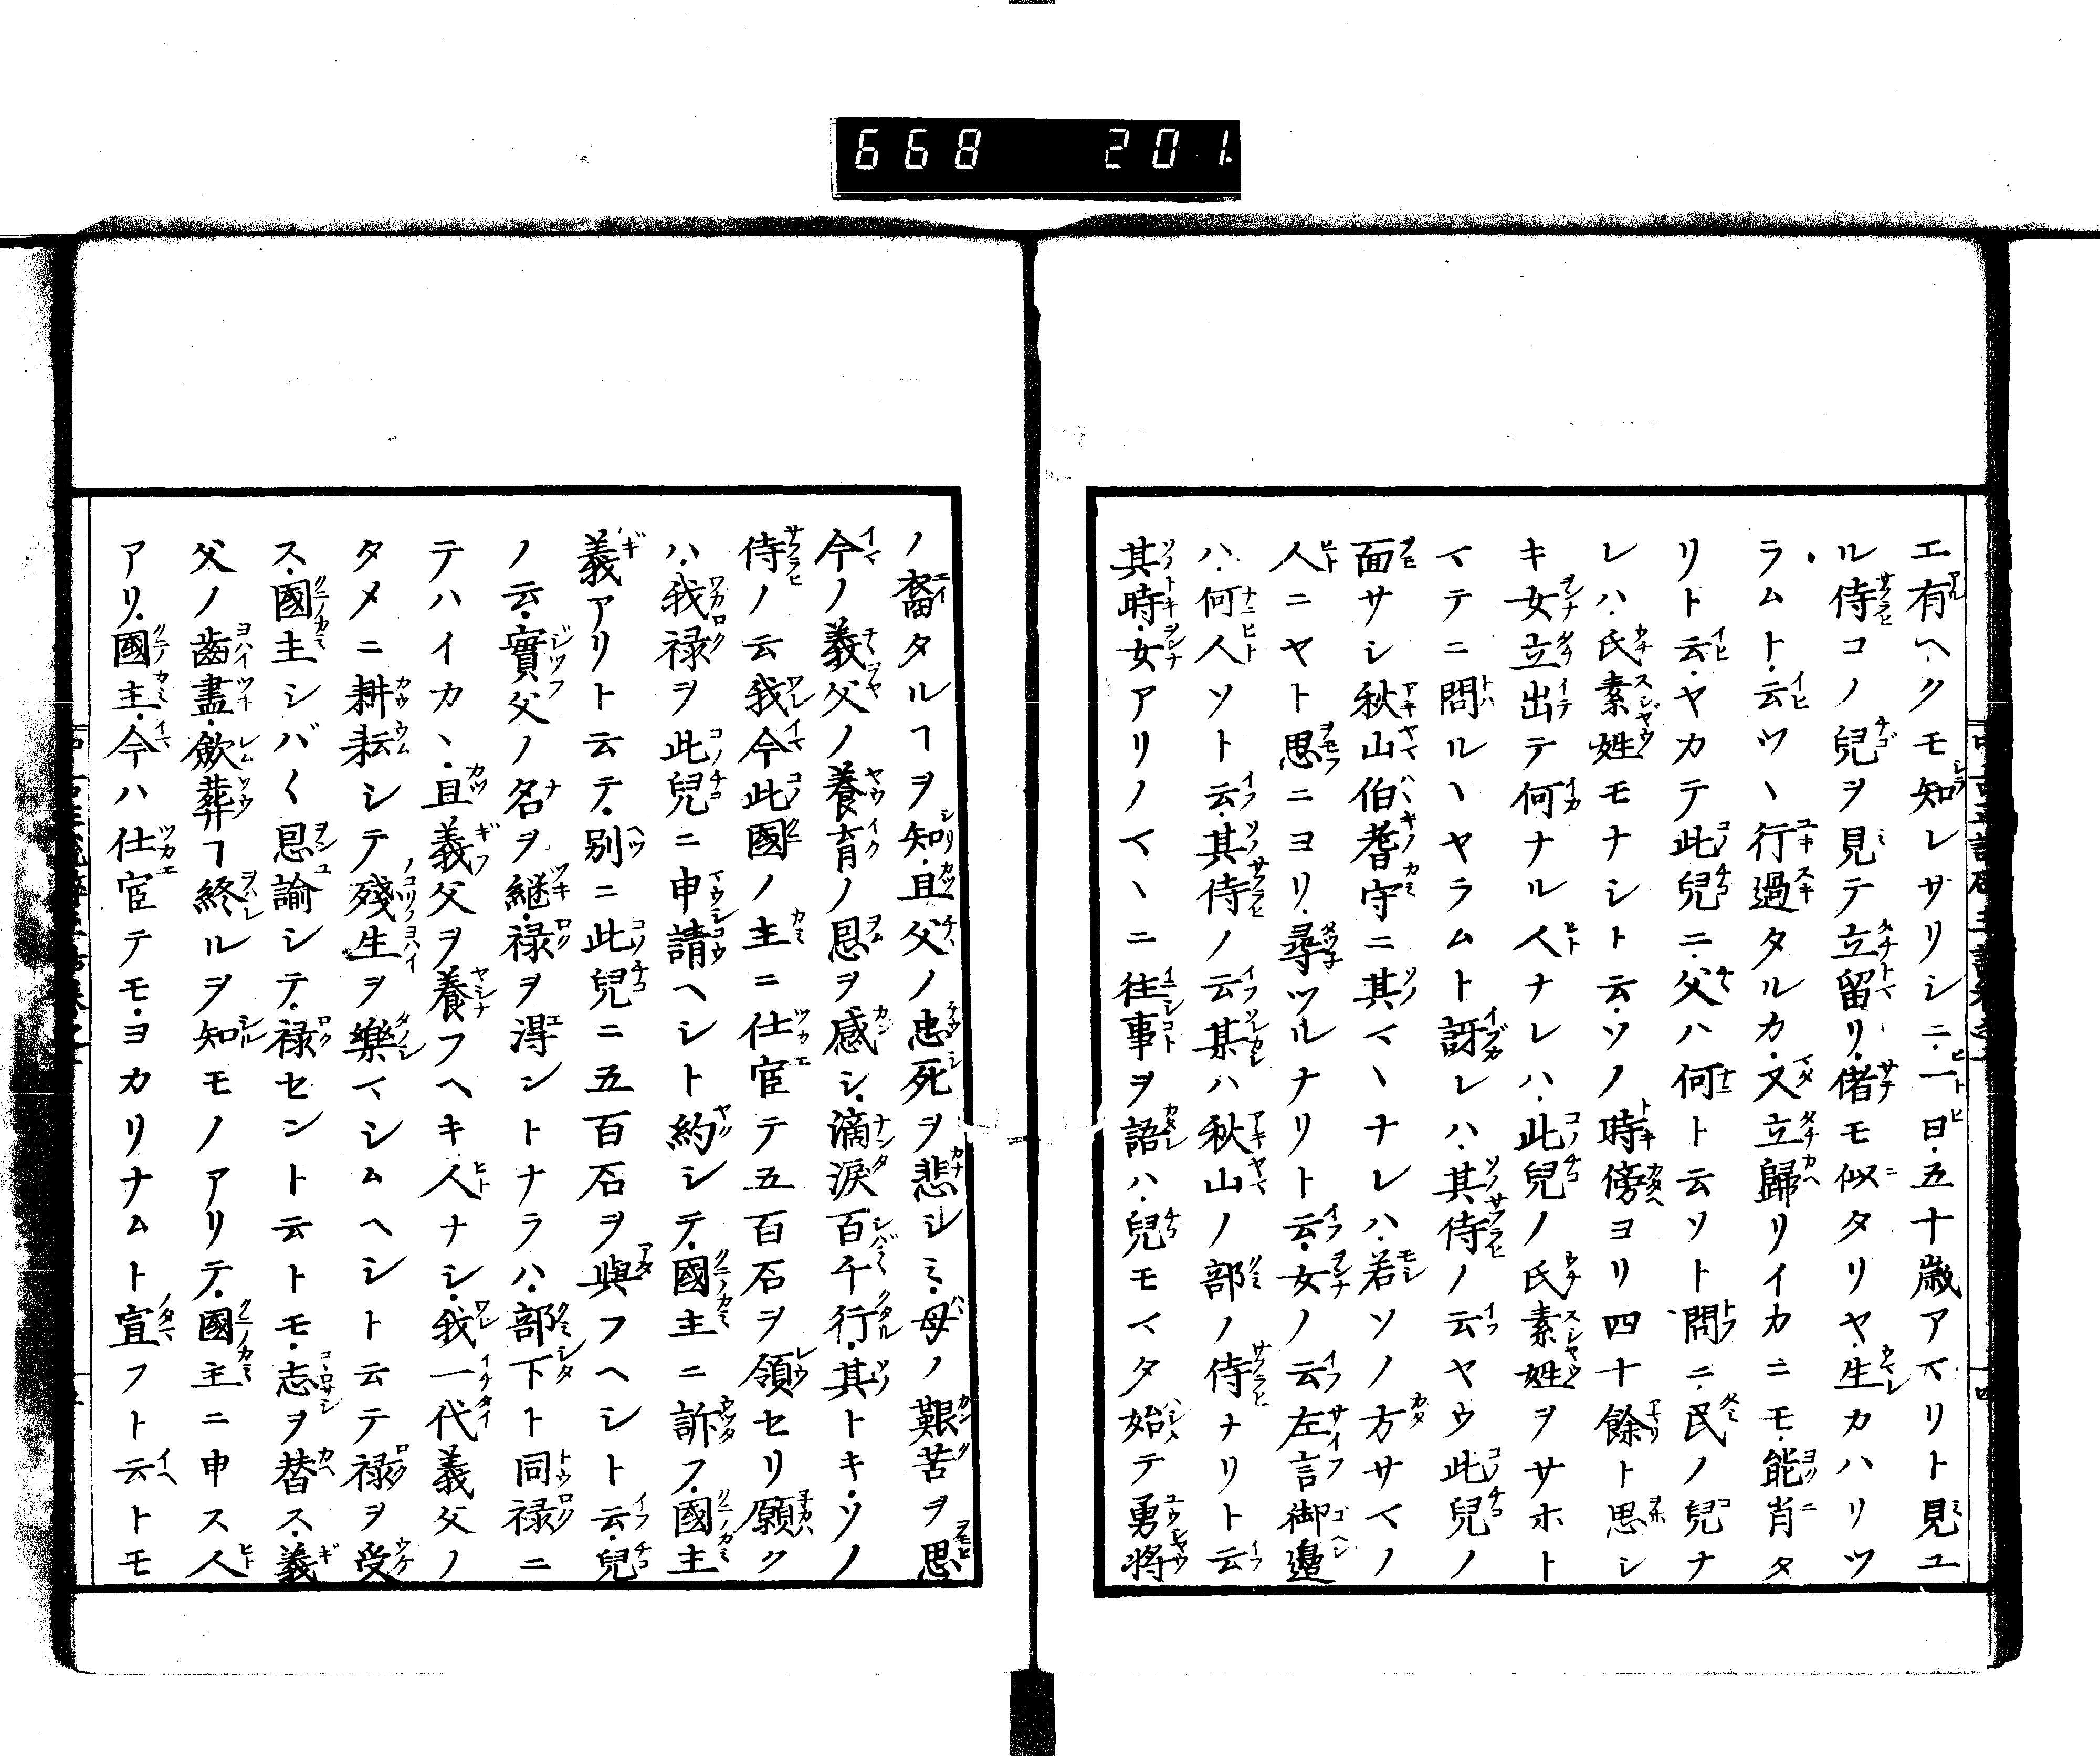 668 201.
エ有ヘクモ知レザリシニ、一日、五十歳アマリト見ユ
ル侍コノ兒ヲ見テ立留リ、偖モ似タリヤ、生カハリツ
ラムト、云ツヽ行過タルカ、又立歸リイカニモ、能肖タ
リト云、ヤカテ此兒ニ、父ハ何ト云ソト問ニ、民ノ兒ナ
レハ、氏素姓モナシト云、ソノ時傍ヨリ四十餘ト思シ
キ女立出テ何ナル人ナレハ、此兒ノ氏素姓ヲサホト
マテニ問ルヽヤラムト訝レハ、其侍ノ云ヤウ此兒ノ
面サシ秋山伯耆守ニ其マヽナレハ、若ソノ方サマノ
人ニヤト思ニヨリ、尋ツルナリト云、女ノ云左言御邉
ハ、何人ソト云、其侍ノ云某ハ秋山ノ部ノ侍ナリト云
其時、女アリノマヽニ往事ヲ語ハ、兒モマタ始テ勇將
ノ裔タルヿヲ知、且父ノ忠死ヲ悲シミ、母ノ艱苦ヲ思
今ノ義父ノ養育ノ恩ヲ感シ、滴淚百千行、其トキ、ソノ
侍ノ云我今此國ノ主ニ仕宦テ五百石ヲ領セリ願ク
ハ、我禄ヲ此兒ニ申請ヘシト約シテ、國主ニ訴フ、國主
義アリト云テ、別ニ此兒ニ五百石ヲ與フヘシト云、兒
ノ云、實父ノ名ヲ継、禄ヲ得ントナラハ、部下ト同禄ニ
テハイカヽ、且義父ヲ養フヘキ人ナシ、我一代義父ノ
タメニ耕耘シテ殘生ヲ樂マシムヘシト云テ禄ヲ受
ス、國主シバ〱恩諭シテ、禄セント云トモ、志ヲ替ス、義
父ノ齒盡、斂葬ヿ終ルヲ知モノアリテ、國主ニ申ス人
アリ、國主、今ハ仕宦テモ、ヨカリナムト宣フト云トモ